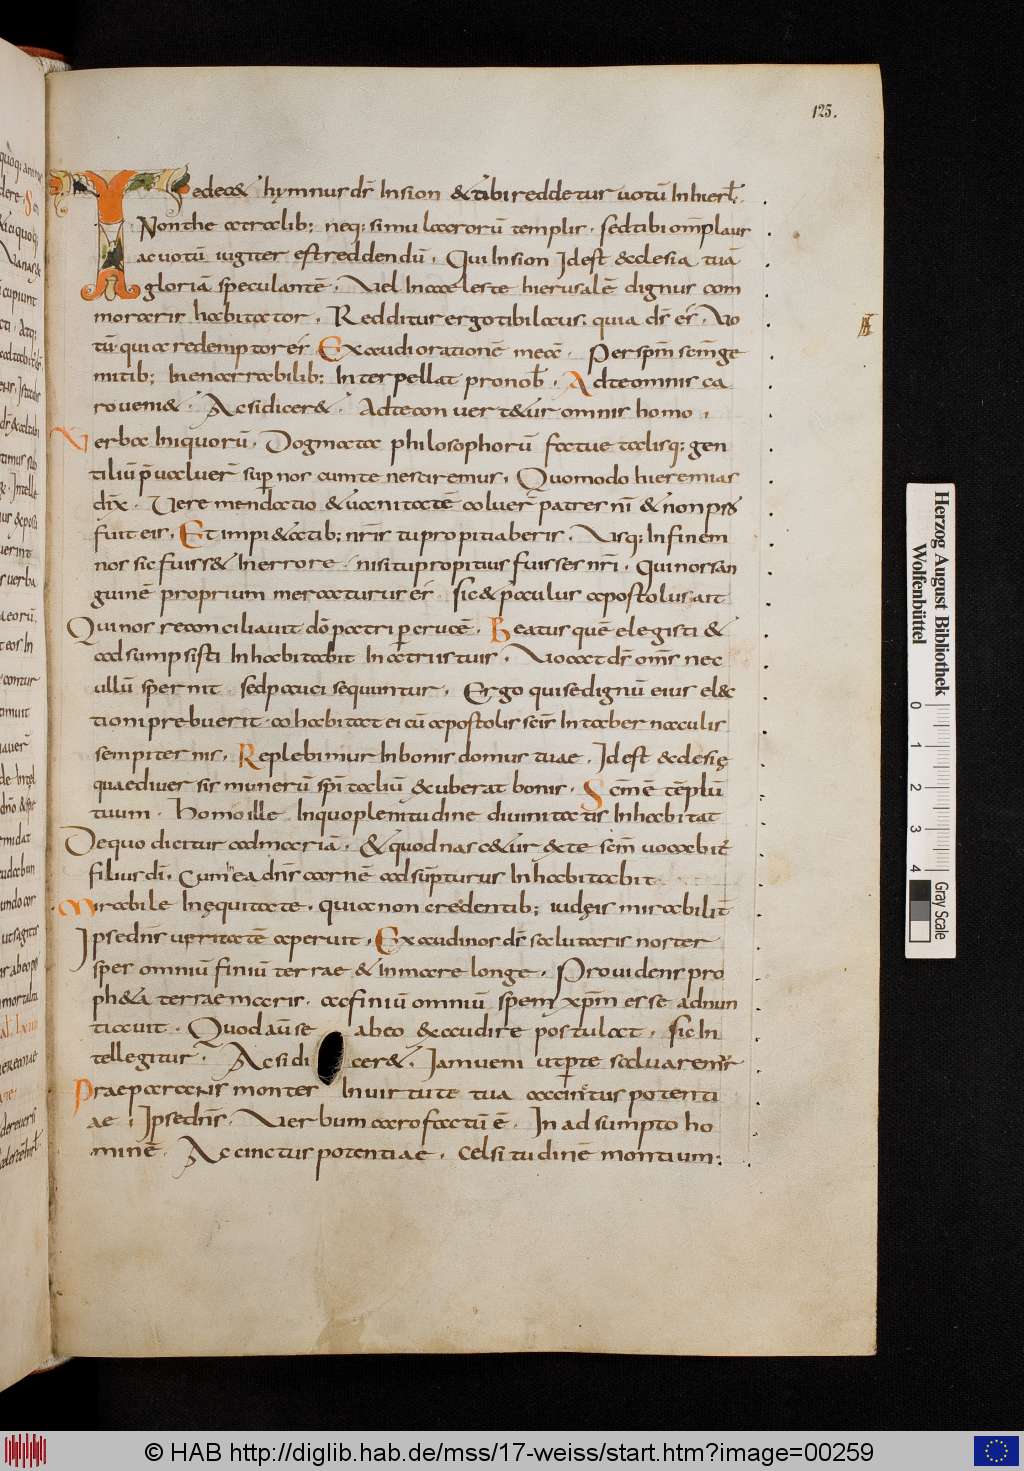 125.
Te decet hymnus dr̄ In sion & tibi reddetur uotū In hierl̄;
Non the atralib; neq; simulacrorū templis. sed tibi om̄p laus
ac uotū iugiter est reddendū. Qui In sion Id est ecclesia tuā
gloriā speculantē. Vel In caeleste hierusalē dignus com
moraris habitator. Redditur ergo tibi laus; quia dr̄ es. Vo
tū quia redemptor es Exaudi orationē meā. Per sp̄m sc̄m ge
mitib; Inenarrabilib; Interpellat pro nob̄. Ad te omnis ca
ro ueni&. Ac si dicer&. Ad te conuert&ur omnis homo,
Verba Iniquorū. Dogmata philosophorū fatue talisq; gen
tiliū p̄ualuer̄ sup nos cum te nesciremus, Quomodo hieremias
dix̄. Vere mendatio & uanitatē coluer̄ patres nr̄i & non p̄
fuit eis. Et impi&atib; nr̄is tu propitiaberis. Vsq; In finem
nos sic fuiss& In errore. nisi tu propitius fuisses nr̄i. Qui nos san
guinē proprium mercaturus es. sic & paulus apostolus ait
Qui nos reconciliauit dō patri p crucē. Beatus quē elegisti &
adsumpsisti Inhabitabit In atriis tuis. Vocat dr̄ om̄s nec
ullū spernit sed pauci sequuntur. Ergo qui se dignū eius el&c
tioni prebuerit cohabitat ei cū apostolis sc̄is In tabernaculis
sempiternis. Replebimur In bonis domus tuae. Id est ecclesię
quae diuersis munerū sp̄italiū exuberat bonis. Sc̄m ē tēplū
tuum. Homo ille In quo plenitudine diuinitatis Inhabitat
De quo dicitur ad mariā. & quod nasc&ur ex te sc̄m uocabit̄
filius dī. Cum In ea dn̄s carnē adsūpturus Inhabitabit
Mirabile In ęquitate. quia non credentib; iudęis mirabilit̄
Ipse dn̄s ueritatē aperuit. Exaudi nos dr̄ salutaris noster
spes omniū finiū terrae & In mare longe. Prouidens pro
ph&a terrae maris. ac finiū omniū spem xp̄m esse adnun
tiauit. Quod aūt se abeo exaudire postulat. sic In
tellegitur. Ac si dicer&. Iam ueni ut p te saluaremur
Praeparans montes In uirtute tua accinctus potenti
ae; Ipse dn̄s. Verbum caro factū ē. In adsumpto ho
minē. Accinctus potentiae. Celsitudinē montium;
Herzog August Bibliothek
Wolfenbüttel
0 1 2 3 4
Gray Scale
© HAB http://diglib.hab.de/mss/17-weiss/start.htm?image=00259